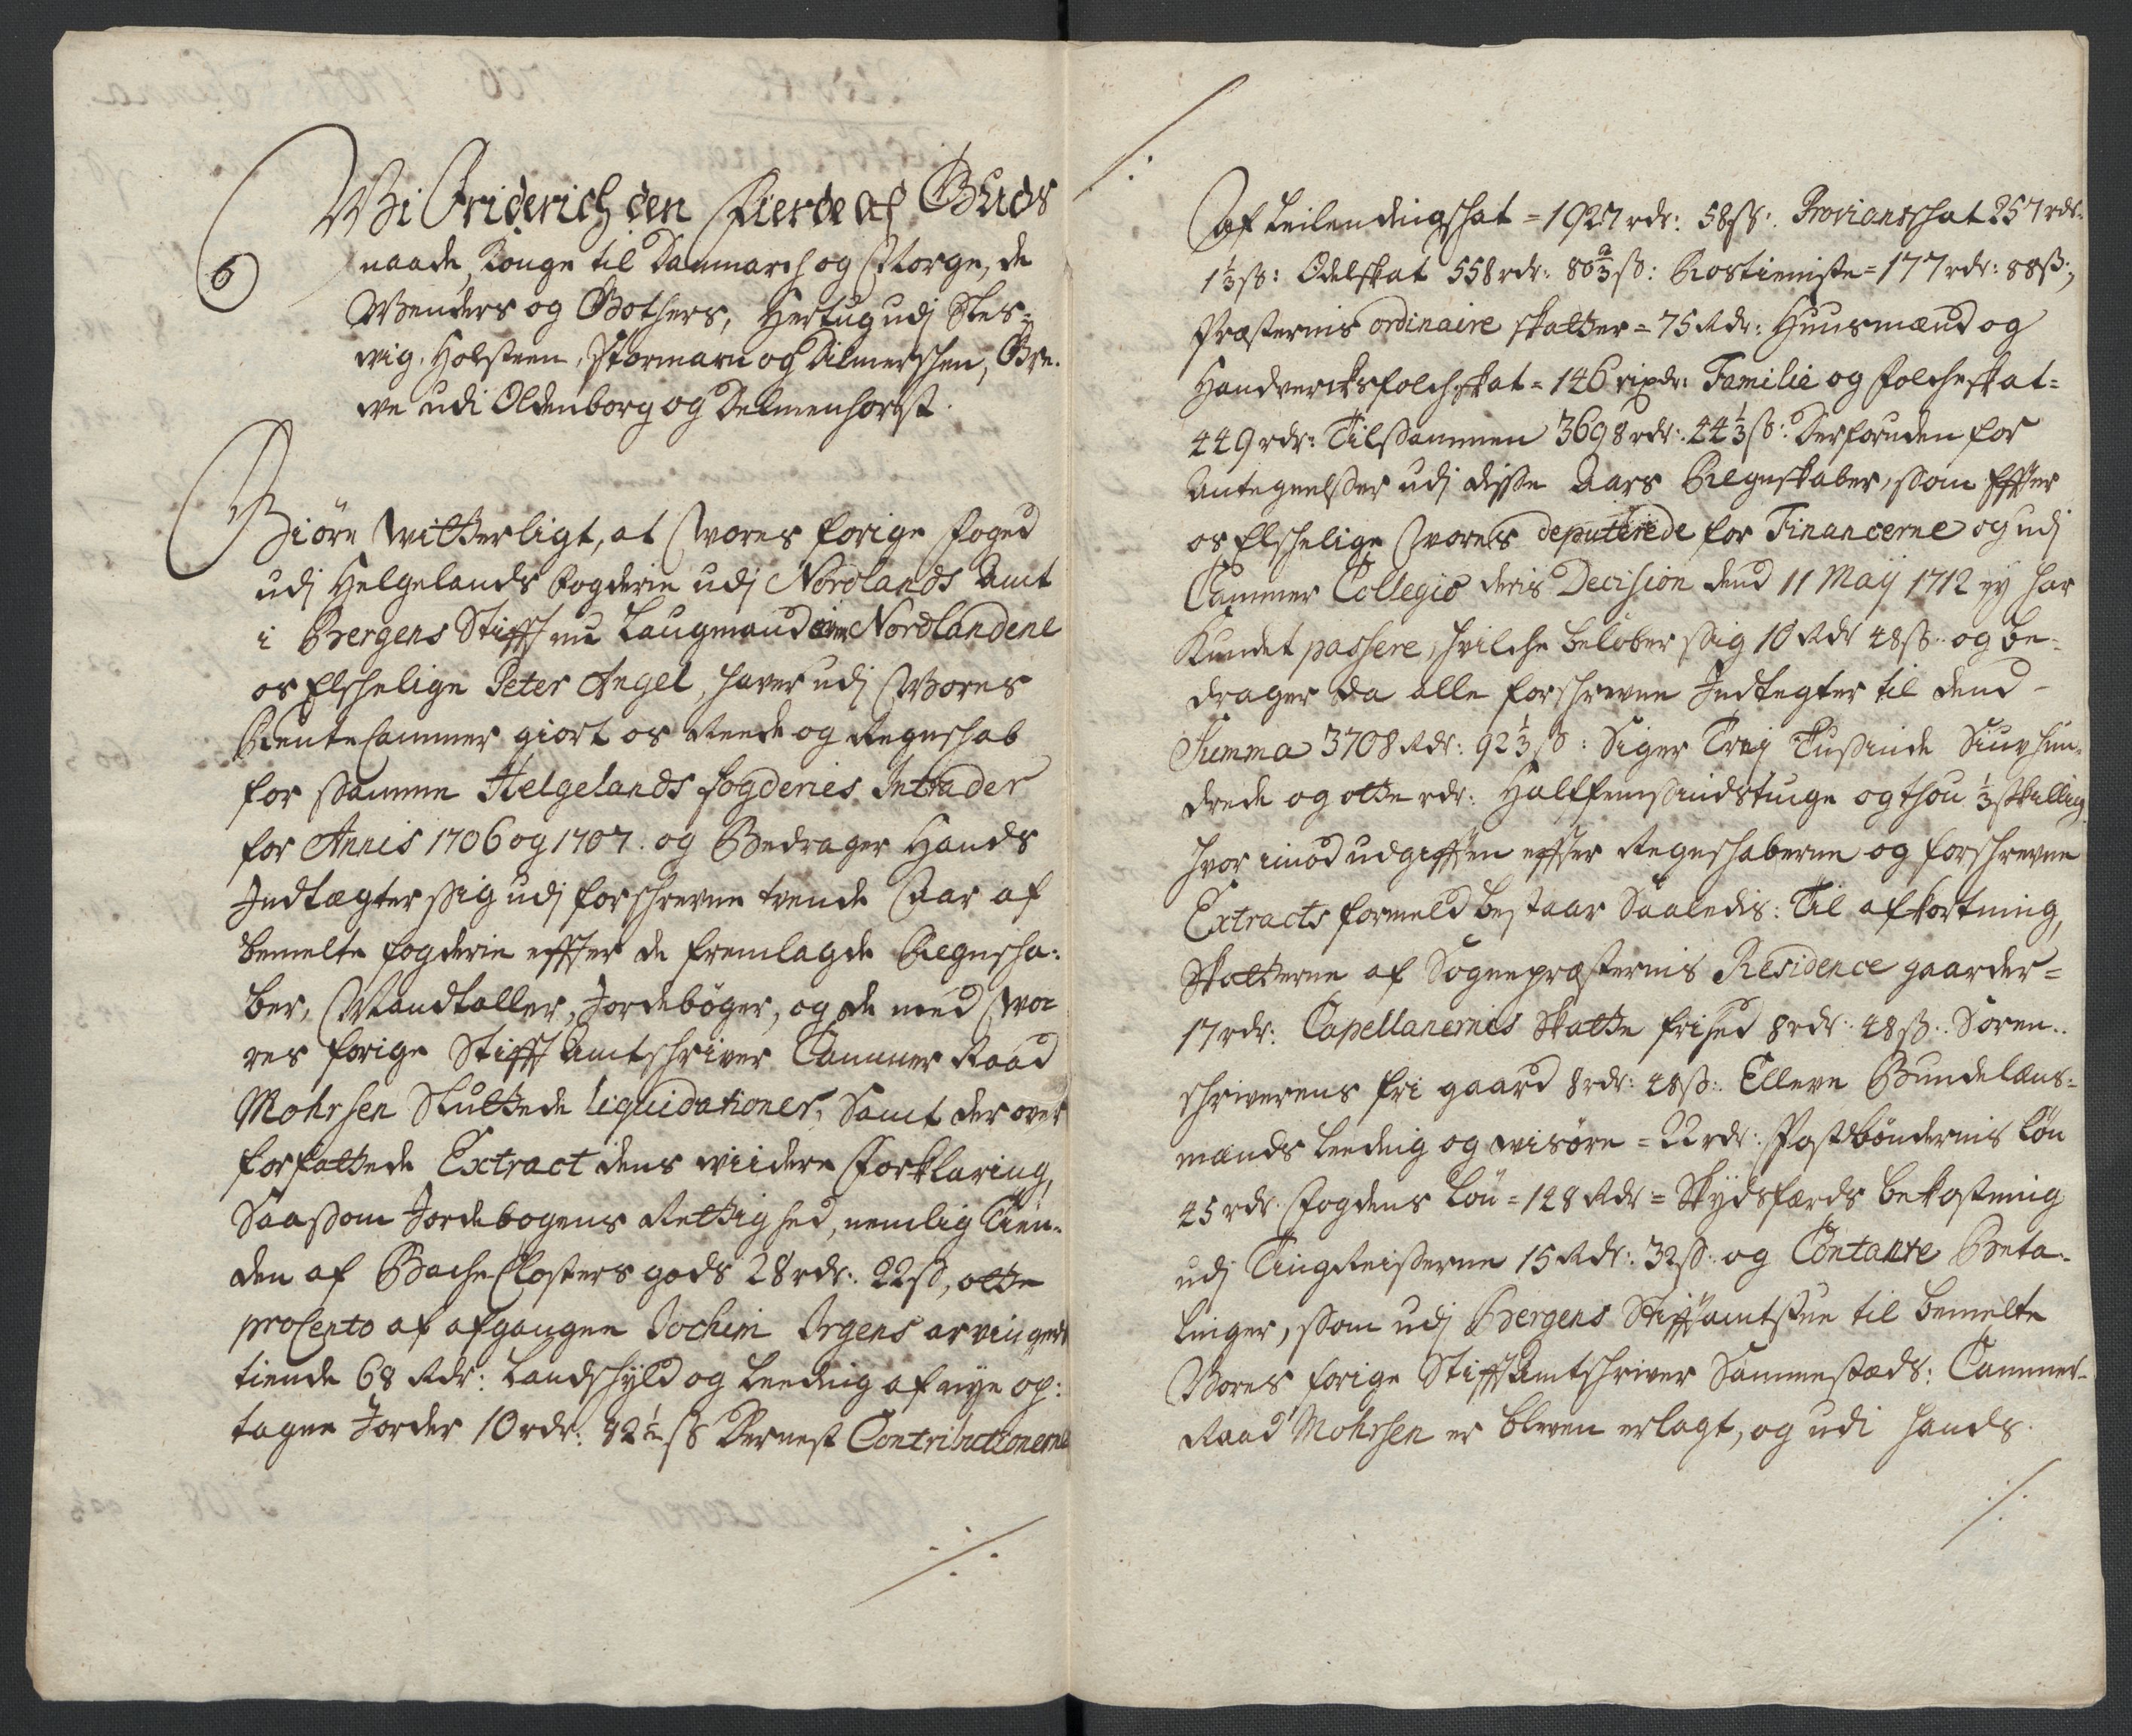 6
Wi Friderich den Fierde af Guds
naade, Konge til Danmarch og Norge, de
Wenders og Gothers, Hertug udj Sles=
wig, Holsteen, Stormarn og Ditmerschen, Gre.
we udi Oldenborg og Delmenhorst.
Giöre Witterligt, at Wores forige foged
udj Helgelands Fogderie udj Nordlands Amt
i Bergens Stifft nu Laugmand over Nordlandene
os Elschelige Peter Angel, haver udj Wores
Rente Cammer giort os Reede og Regnschab
for Samme Helgelands fogderies Intrader
for Annis 1706 og 1707. og Bedrager Hands
Indtægter sig udj forschrevne tvende Aar af
bemelte fogderie effter de fremlagde Regnscha:
ber, Mandtaller, Jordebøger, og de med Wo=
res forige Stifft Amtschriver Cammer Raad
Mohrsen Sluttede liquidationer, Samt der over
forfattede Extract dens widere Forklaring,
Saasom Jordebogens Rettighed, nemlig Tien.
den af Bache Closters gods 28 rdr: 22 ß, otte
procento af afgangne Jochim Irgens arvingers
tiende 68 Rdr: Landschyld og Leedig af nye op:
tagne Jorder 10 rdr: 82 1/2 ß Dernest Contributionerne
./.
/:
Af Leilendingschat = 1927 rdr: 58 ß: Proviantschat 257 rdr:
1 1/3 ß: Odelskat 558 rdr: 80 2/3 ß: Rostieniste = 177 rdr: 88 ß:,
Præsternis ordinaire skatter = 75 Rdr: Huusmænd og
Handvercksfolchskat = 146 rixdr: Familie og folcheskat=
449 rdr: Tilsammen 3698 rdr: 44 1/3 ß: Derforuden for
Antegnelser udj disse Aars Regnskaber, som Effter
os Elschelige Wores deputerede for Financerne og udj
Cammer Collegio deris Decision dend 11 Maij 1712 ey har
Kundet passere, hvilche beløber sig 10 Rdr 48 ß. og be=
drager da alle forschrevne Indtegter til dend
Summa 3708 Rdr: 92 1/3 ß: Siger Trej Tusinde Siuvhun=
drede og otte rdr: Halffemsindstiuge og thou 1/3 skilling
hvor imod udgifften effter Regnschaberne og forschrevne
Extracts formeld bestaar Saaledis: Til afkortning,
Skatterne af Sognepræsternis Residence gaarder=
17 rdr: Capellanernes Skatte frihed 8 rdr: 48 ß.. Soren..
schriverens fri gaard 8 rdr: 48 ß: Elleve Bundelens=
mænds Leedig og wisøre = 22 rdr: Postbøndernis Løn
45 rdr. Fogdens Løn = 128 Rdr = Skydsfærds bekostning
udj Tingreiserne 15 Rdr: 32 ß: og Contante Beta=
linger, som udj Bergens Stifftamtstue til bemelte
Wores forige Stifft Amtschriver Sammestæds: Cammer=
Raad Mohrsen er bleven erlagt, og udi hands
./.